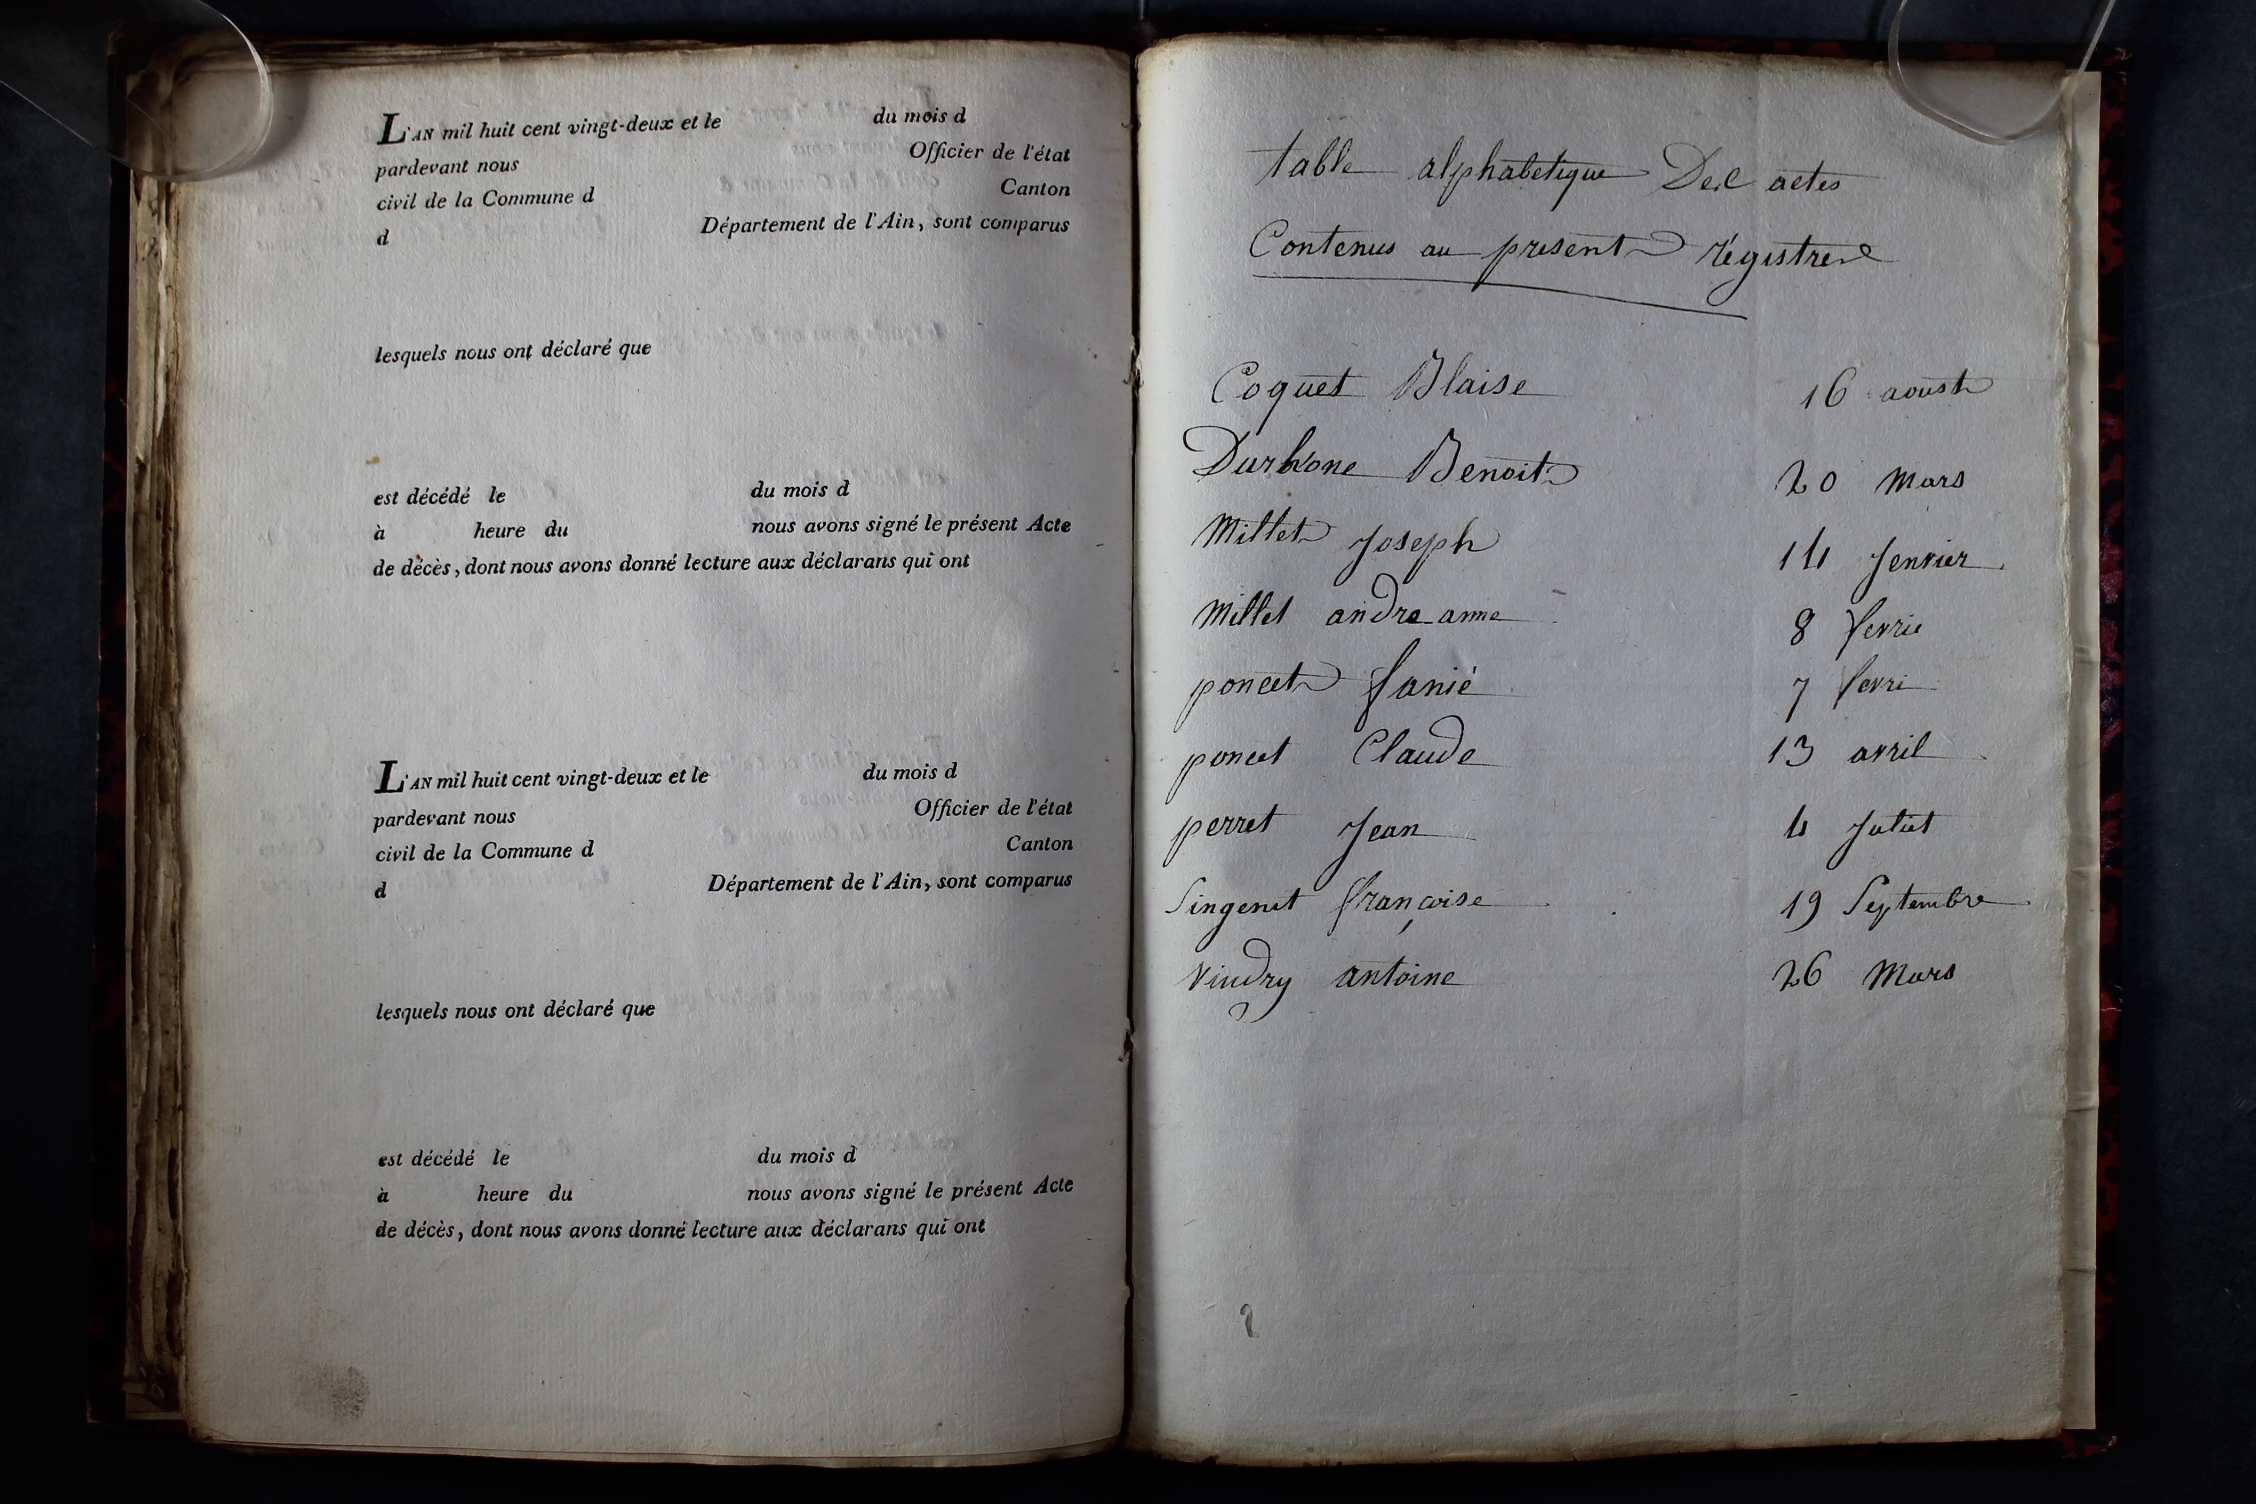 L'AN mil huit cent vingt-deux et le du mois d
pardevant nous Officier de l'état
civil de la Commune d Canton
d Département de l'Ain, sont comparus
lesquels nous ont déclaré que
est décédé le du mois d
à heure du nous avons signé le présent Acte
de décès, dont nous avons donné lecture aux déclarans qui ont
L'AN mil huit cent vingt-deux et le du mois d
pardevant nous Officier de l'état
civil de la Commune d Canton
d Département de l'Ain, sont comparus
lesquels nous ont déclaré que
est décédé le du mois d
à heure du nous avons signé le présent Acte
de décès, dont nous avons donné lecture aux déclarans qui ont
table alphabetique Des actes
Contenus au present régistre
Coquet Blaise 16 aoust
Durhone Benoit 20 Mars
Millet Joseph 14 Jenvier
Millet andre anne 8 fevrie
poncet fanié 7 fevri
poncet Claude 13 avril
perret Jean 4 Juliet
Singenet françoise 19 Septembre
Vindry antoine 26 Mars